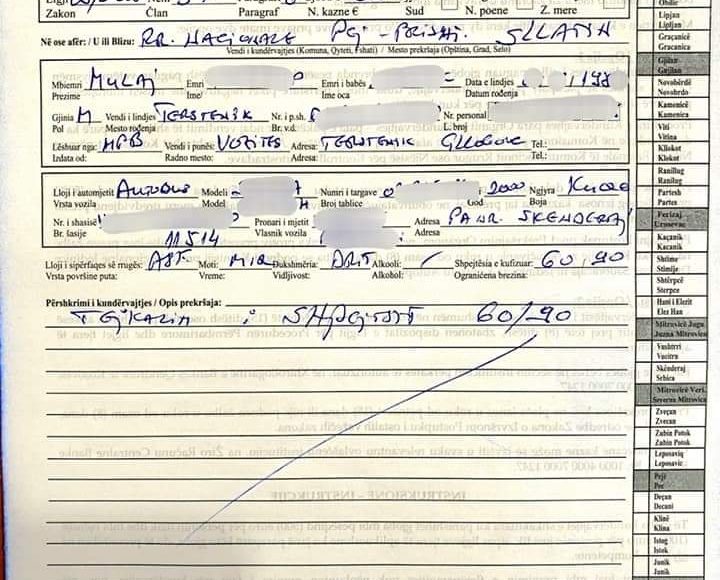 Zakon Član Paragraf N. kazne € Sud N. poene Z. mere
Në ose afër: / U ili Blizu: RR. NACIONALE PEJ - PRISHT. SLLATIN
Vendi i kundërvajtjes (Komuna, Qyteti, Fshati) / Mesto prekršaja (Opština, Grad, Selo)
Mbiemri MULAJ Emri Emri i babës Data e lindjes 198
Prezime Ime/ Ime oca Datum rođenja
Gjinia M Vendi i lindjes TERSTENIK Nr. i p.sh. Nr. personal
Pol Mesto rođenja Br. v.d. L. broj
Lëshuar nga: MPB Vendi i punës: VOZITES Adresa: TERSTENIK GLLOGOC Tel.:
Izdata od: Radno mesto: Adresa: Tel.:
Lloji i automjetit AUTOBUS Modeli Numri i targave 2000 Ngjyra KUQE
Vrsta vozila Model Broj tablice God Boja
Nr. i shasisë Pronari i mjetit Adresa PANR. SKENDERAJ
Br. šasije 11514 Vlasnik vozila Adresa
Lloji i sipërfaqes së rrugës: ASF. Moti: MIR Dukshmëria: DRIT Alkooli: / Shpejtësia e kufizuar: 60, 90
Vrsta površine puta: Vreme: Vidljivost: Alkohol: Ograničena brezina:
Përshkrimi i kundërvajtjes / Opis prekršaja:
TEJKALIM i SHPEJTSIS 60/90
Obiliç
Lipjan
Lipljan
Graçanicë
Gracanica
Gjilan
Gnjilane
Novobërdë
Novobrdo
Kamenicë
Kamenica
Viti
Vitina
Kllokot
Klokot
Ranillug
Ranilug
Partesh
Partes
Ferizaj
Urosevac
Kaçanik
Kacanik
Shtime
Stimlje
Shtërpcë
Sterpce
Hani i Elezit
Elez Han
Mitrovicë Jugu
Juzna Mitrovica
Vushtrri
Vucitrn
Skënderaj
Srbica
Mitrovicë Veri.
Severna Mitrovica
Zveçan
Zvecan
Zubin Potok
Zubin Potok
Leposaviq
Leposavic
Pejë
Pec
Deçan
Decani
Klinë
Klina
Istog
Istok
Junik
Junik